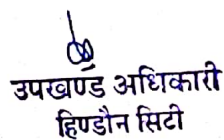 उपखण्ड अधिकारी
हिण्डौन सिटी